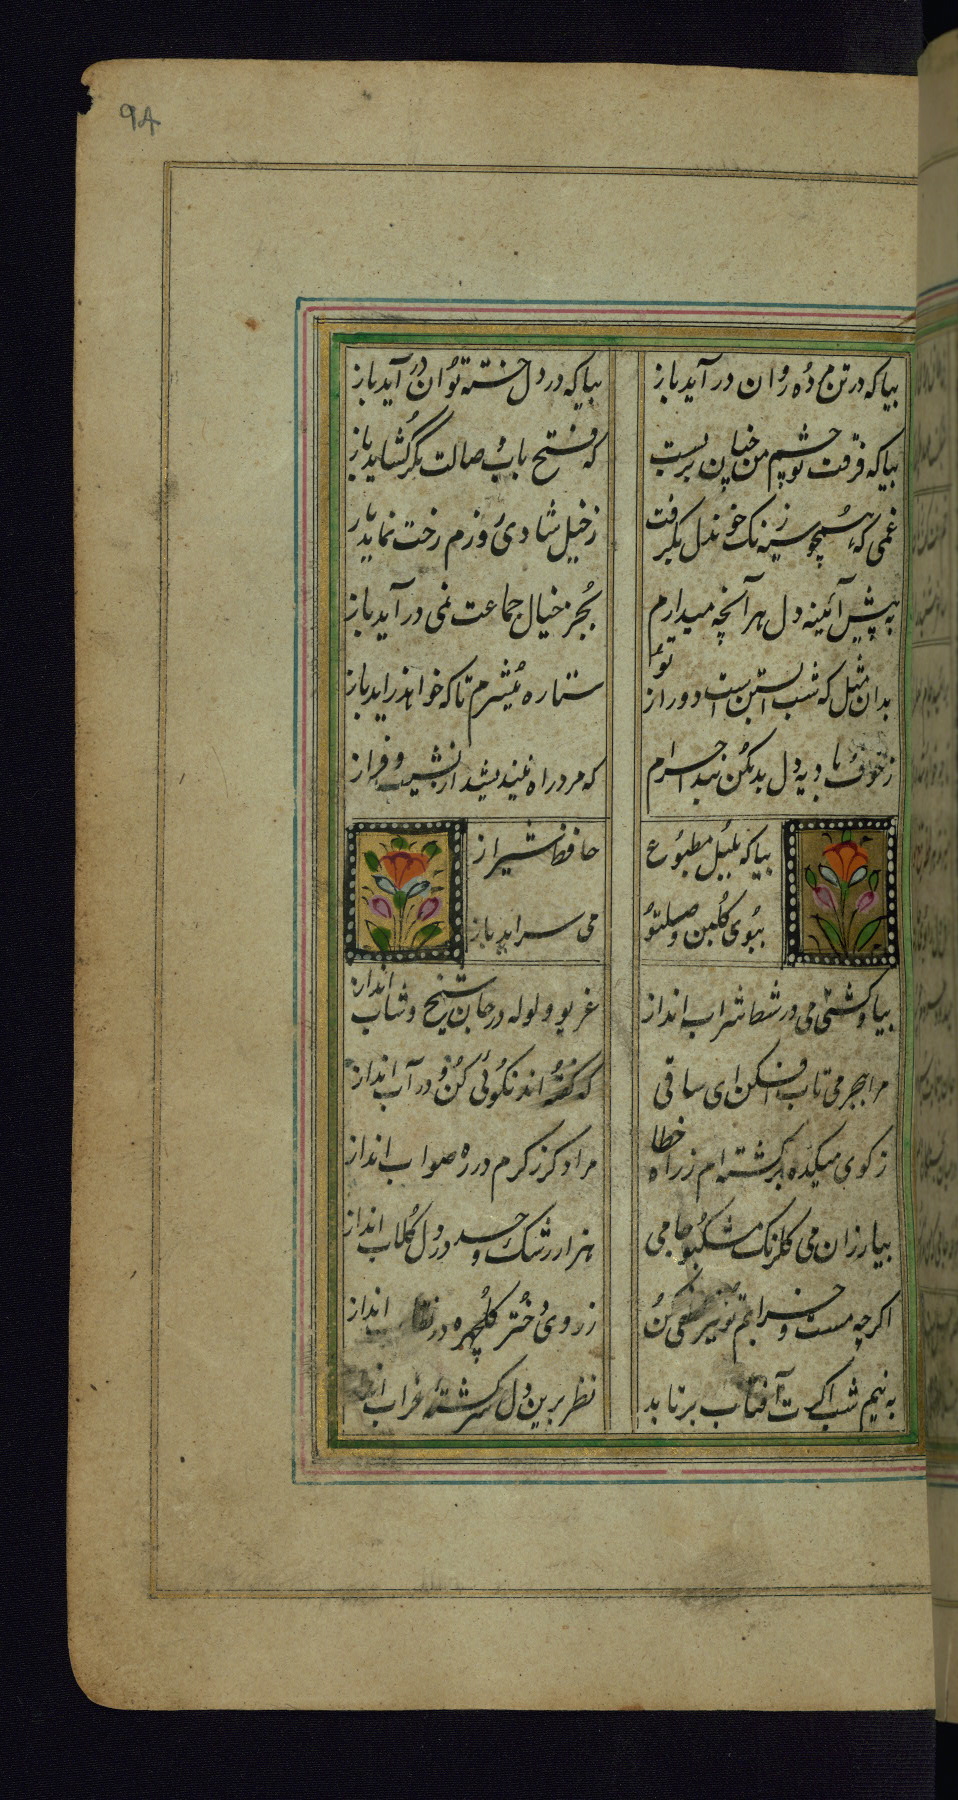 94
بیا که در تن مرده روان در آید باز
بیا که در دل خسته توان در آید باز
بیا که فرقت تو چشم من چنان بربست
که فتح باب وصالت مگر گشاید باز
غمی که همچو سپه زنگ خون دل بگرفت
ز خیل شادی روزم رخت نماید باز
به پیش آئینه دل هر آنچه میدارم
بجز خیال جماعت نمی در آید باز
بدان مثل که شب آبستن است دور از تو
ستاره میشمرم تا که خواهد زاید باز
ز خوف بادیه دل بد مکن ببند احرام
که مرد راه نیندیشد از نشیب و فراز
بیا که بلبل مطبوع
حافظ شیراز
ببوی گلبن وصل تو
می سراید باز
بیا و کشتی می در شط شراب انداز
غریو و لوله در جان شیخ و شاب انداز
مرا بجر می تاب افکن ای ساقی
که گفته اند نکوئی کن و در آب انداز
ز کوی میکده برگشته ام ز راه خطا
مرا دگر ز کرم در ره صواب انداز
بیار زان می گلرنگ مشکبو جامی
هزار رشک و حسد در دل گلاب انداز
اگرچه مست و خرابم تو نیز لطفی کن
ز روی دختر گلچهره در نقاب انداز
به نیم شب اگرت آفتاب برتابد
نظر برین دل سرگشته خراب انداز